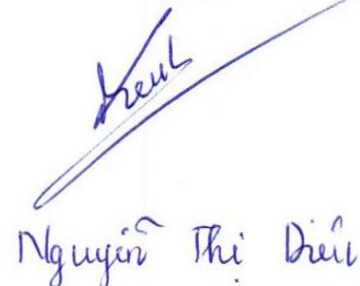 Nguyễn Thị Diệu